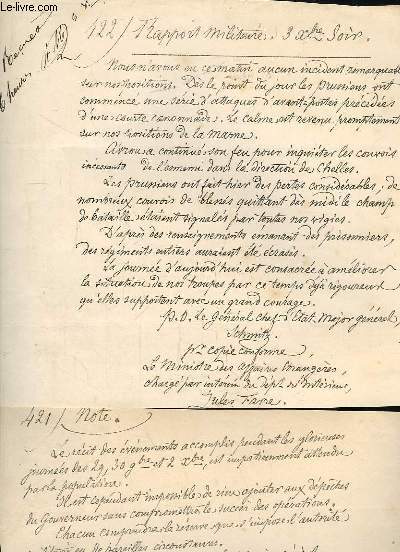 122/ Rapport Militaire. 3 Xbre Soir.
Nous n'avons eu ce matin aucun incident remarquable
sur nos positions. Dès le point du jour les prussiens ont
commencé une série d'attaques d'avant-postes précédées
d'une courte canonnade. Le calme est revenu promptement
sur nos positions de la Marne.
Avron a continué son feu pour inquiéter les convois
incessants de l'ennemi dans la direction de Chelles.
Les prussiens ont fait hier des pertes considérables, de
nombreux convois de blessés quittant dès midi le champ
de bataille étaient signalés par toutes nos vigies.
D'après des renseignements émanant des prisonniers,
des régiments entiers auraient été écrasés.
La journée d'aujourd'hui est consacrée à améliorer
la situation de nos troupes par ce temps déjà rigoureux
qu'elles supportent avec un grand courage.
P.O. Le Général Chef d'Etat Major général,
Schmitz
pr copie conforme,
Le Ministre des affaires étrangères,
chargé par intérim du dépt de l'Intérieur,
Jules Favre.
421/ Note.
Le récit des événements accomplis pendant les glorieuses
journées des 29, 30 9bre et 2 Xbre, est impatiemment attendu
par la population.
Il est cependant impossible de rien ajouter aux dépêches
du Gouverneur sans compromettre le succès des opérations.
Chacun comprendra la réserve que s'impose l'autorité